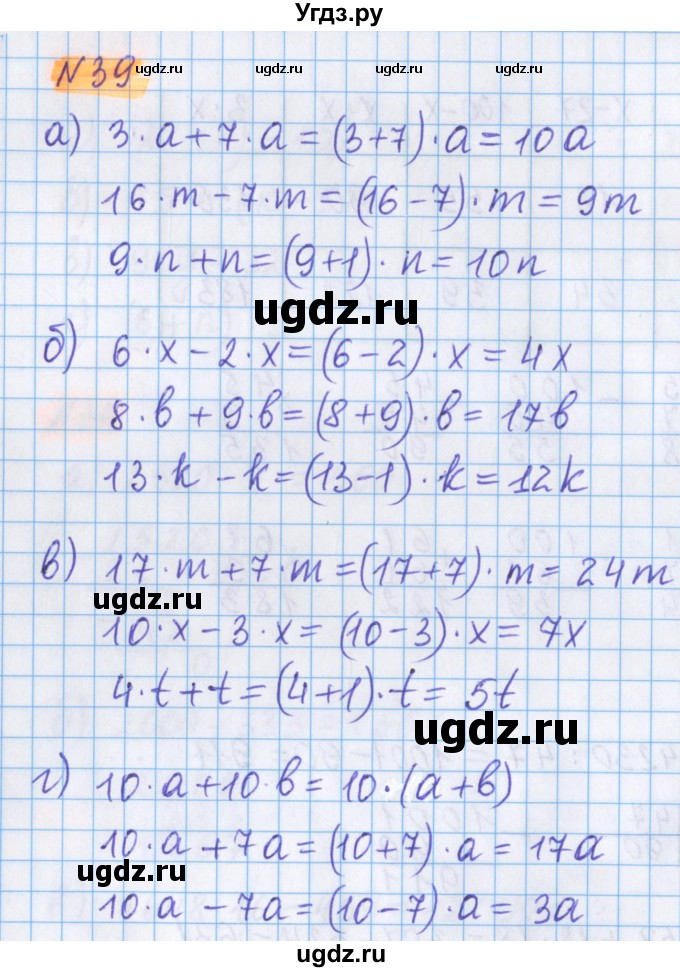 Угдз.ру
N39
ugdz.ru ugdz.ru ugdz.ru
а) 3·a+7·a=(3+7)·a=10a
16·m-7·m=(16-7)·m=9m
9·n+n=(9+1)·n=10n
ugdz.ru
б) 6·x-2·x=(6-2)·x=4x
8·b+9·b=(8+9)·b=17b
13·k-k=(13-1)·k=12k
в) 17·m+7·m=(17+7)·m=24m
ugdz.ru
10·x-3·x=(10-3)·x=7x
4·t+t=(4+1)·t=5t
ugdz.ru
г) 10·a+10·b=10·(a+b)
10·a+7a=(10+7)·a=17a
ugdz.ru
10·a-7a=(10-7)·a=3a
ugdz.ru ugdz.ru ugdz.ru